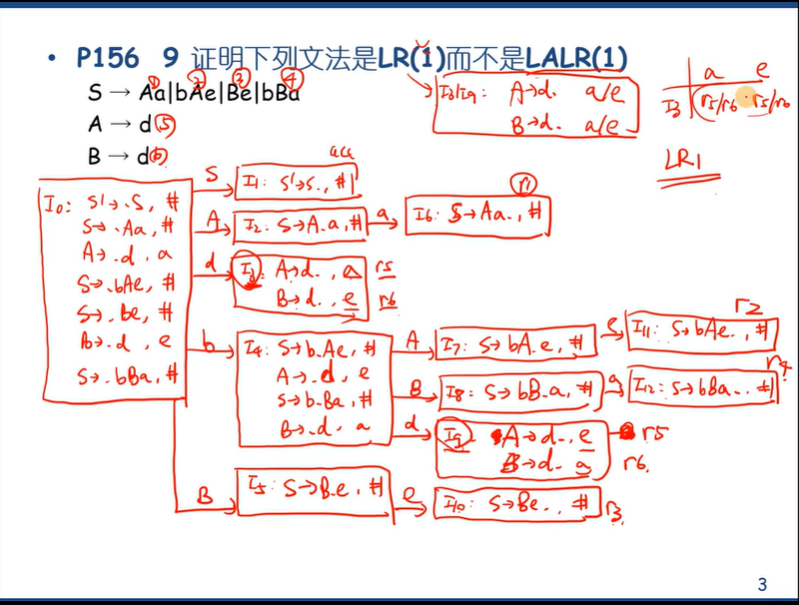 • P156 9 证明下列文法是LR(1)而不是LALR(1)
S → Aa|bAe|Be|bBa
① ② ③ ④
A → d ⑤
B → d ⑥
I3/I9: A→d. a/e
B→d. a/e
a e
I3 r5/r6 r5/r6
LR1
I0: S'→.S, #
S→.Aa, #
A→.d, a
S→.bAe, #
S→.Be, #
B→.d, e
S→.bBa, #
S I1: S'→S., # acc
A I2: S→A.a, # a I6: S→Aa., # r1
d I3: A→d., a r5
B→d., e r6
b I4: S→b.Ae, #
A→.d, e
S→b.Ba, #
B→.d, a
A I7: S→bA.e, # e I11: S→bAe., # r2
B I8: S→bB.a, # a I12: S→bBa., # r4
d I9: A→d., e r5
B→d., a r6.
B I5: S→B.e, # e I10: S→Be., # r3.
3